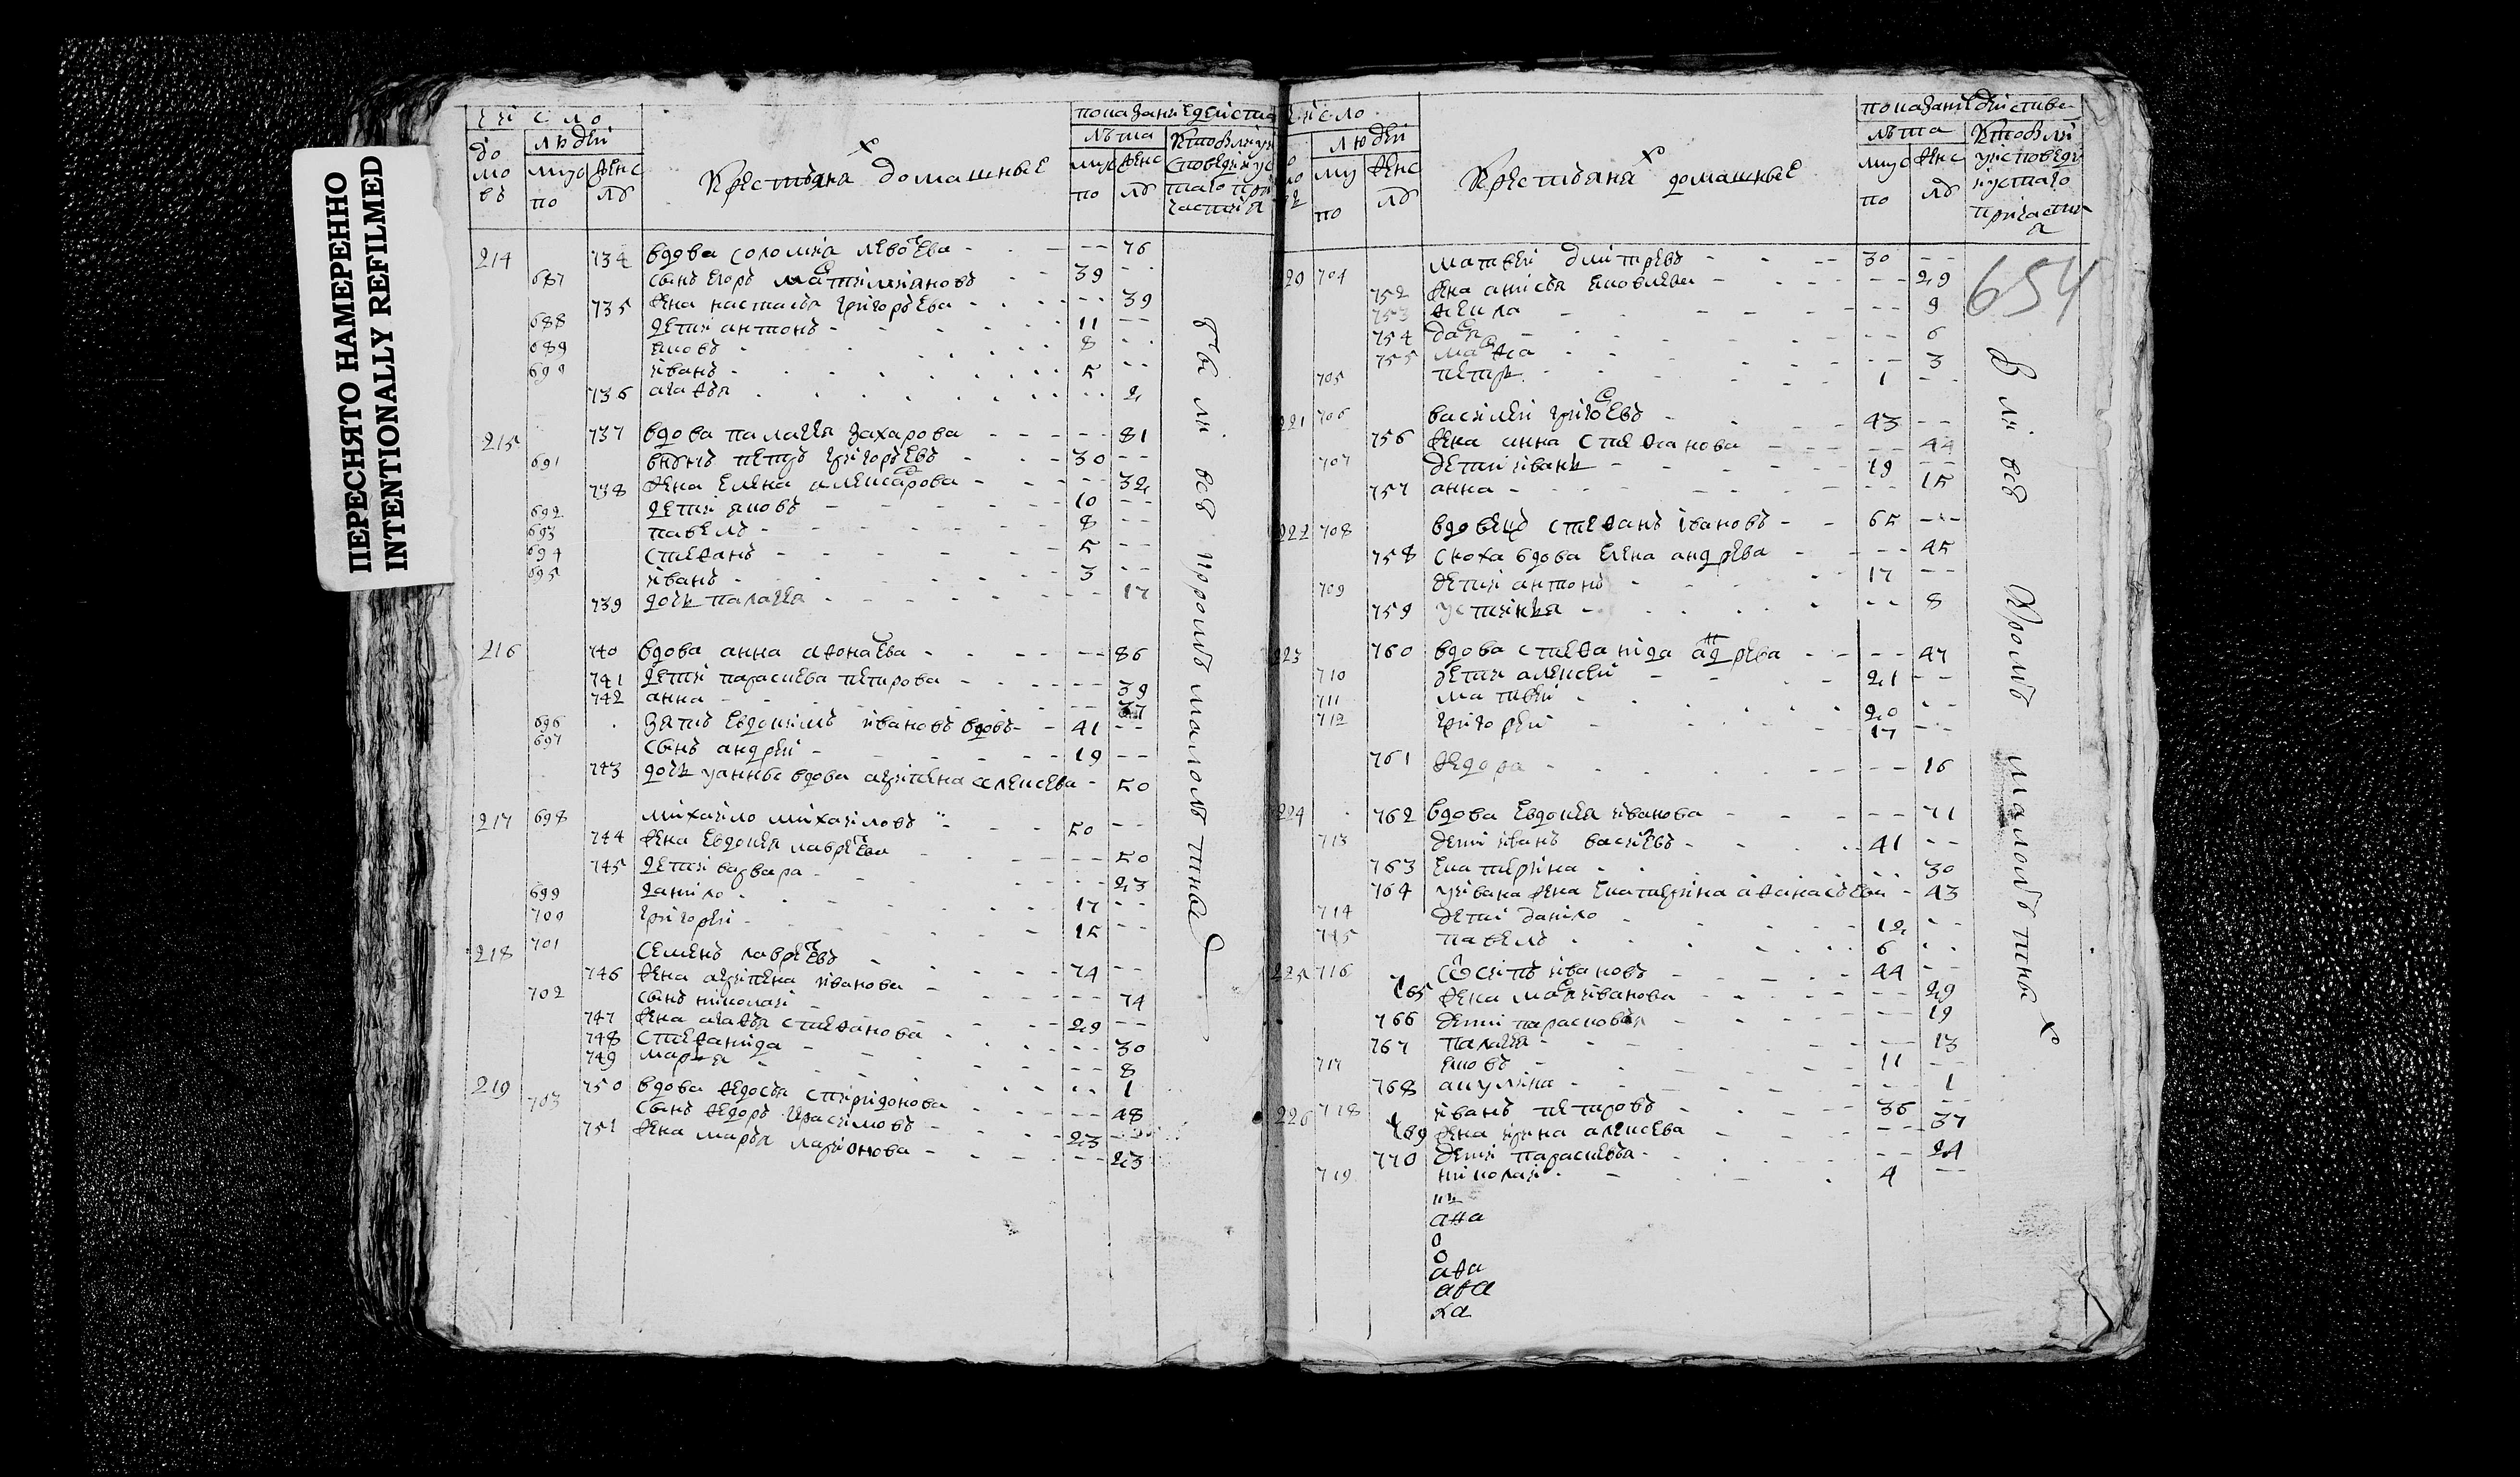 ПЕРЕСНЯТО НАМЕРЕННО
INTENTIONALLY REFILMED
число
домовъ
людей
муско
женс
показание действа
лѣта
муско
женс
Крестьяня домашные
214 734 вдова соломия -- 76
687 сынъ егоръ 39 --
735 жена настасья григорьева -- 39
688 дети антонъ 11 --
689 яковъ 8 --
690 иванъ 5 --
736 агафья -- 2
215 737 вдова палагея захарова -- 81
691 внукъ петръ григорьевъ 30 --
738 жена елена алексарова -- 32
692 дети яковъ 10 --
693 павелъ 8 --
694 стефанъ 5 --
695 иванъ 3 --
739 дочь палагея -- 17
216 740 вдова анна -- 86
741 дети парасчева петрова -- 39
742 анна -- 37
696 зять евдокимъ ивановъ вдовъ 41 --
697 сынъ андрей 19 --
743 дочь у анны вдова агрипена алексеева -- 50
217 698 михайло михайловъ 50 --
744 жена евдокея -- 50
745 дети варвара -- 23
699 данило 17 --
700 григорей 15 --
218 701 семенъ 74 --
746 жена агрипена иванова -- 74
702 сынъ николай 29 --
747 жена агафья стефанова -- 30
748 стефанида -- 8
749 марья -- 1
219 750 вдова федосья спиридонова -- 48
703 сынъ федоръ герасимовъ 23 --
751 жена марья ларионова -- 23
были всѣ кромѣ малолѣтныхъ
число
людей
муско
женс
Крестьяня домашные
лѣта
муско
женс
у исповеди
и у стаго
причастия
654
220 704 матвей дмитревъ 30 --
752 жена анисья яковлева -- 29
753 фекла -- 9
754 -- 6
755 -- 3
705 петръ 1 --
221 706 василей 43 --
756 жена анна стефанова -- 44
707 дети иванъ 19 --
757 анна -- 15
222 708 вдовецъ стефанъ ивановъ 65 --
758 сноха вдова елена андрева -- 45
709 дети антонъ 17 --
759 устинья -- 8
223 760 вдова стефанида андрева -- 47
710 дети алексей 21 --
711 матвей 20 --
712 григорей 17 --
761 федора -- 16
224 762 вдова евдокея иванова -- 71
713 дети иванъ 41 --
763 екатерина -- 30
764 у ивана жена екатерина афанасьева -- 43
714 дети данило 12 --
715 павелъ 6 --
225 716 осипъ ивановъ 44 --
765 жена иванова -- 29
766 дети парасковья -- 19
767 палагея -- 13
717 яковъ 11 --
768 акулина -- 1
226 718 иванъ петровъ 36 --
769 жена ирина алексева -- 37
770 дети парасчева -- 24
719 николай 4 --
ана
о
о
афа
афа
ка
были всѣ кромѣ малолѣтныхъ